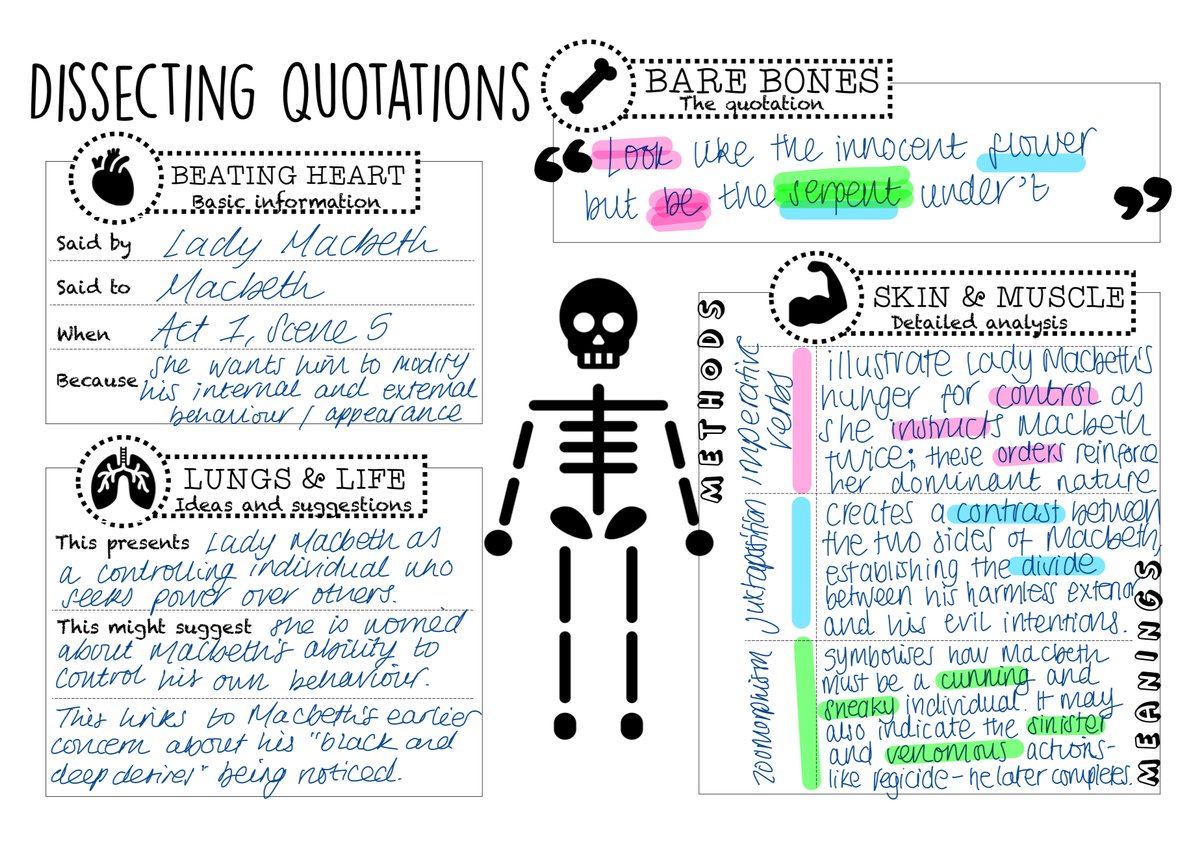 DISSECTING QUOTATIONS
BARE BONES
The quotation
“
Look like the innocent flower
but be the serpent under't
”
BEATING HEART
Basic information
Said by Lady Macbeth
Said to Macbeth
When Act 1, Scene 5
Because she wants him to modify
his internal and external
behaviour / appearance
LUNGS & LIFE
Ideas and suggestions
This presents Lady Macbeth as
a controlling individual who
seeks power over others.
This might suggest she is worried
about Macbeth's ability to
control his own behaviour.
This links to Macbeth's earlier
concern about his "black and
deep desires" being noticed.
SKIN & MUSCLE
Detailed analysis
METHODS
imperative
verbs
illustrate Lady Macbeth's
hunger for control as
she instructs Macbeth
twice; these orders reinforce
her dominant nature
juxtaposition
creates a contrast between
the two sides of Macbeth,
establishing the divide
between his harmless exterior
and his evil intentions.
zoomorphism
symbolises how Macbeth
must be a cunning and
sneaky individual. It may
also indicate the sinister
and venomous actions-
like regicide - he later completes.
MEANINGS